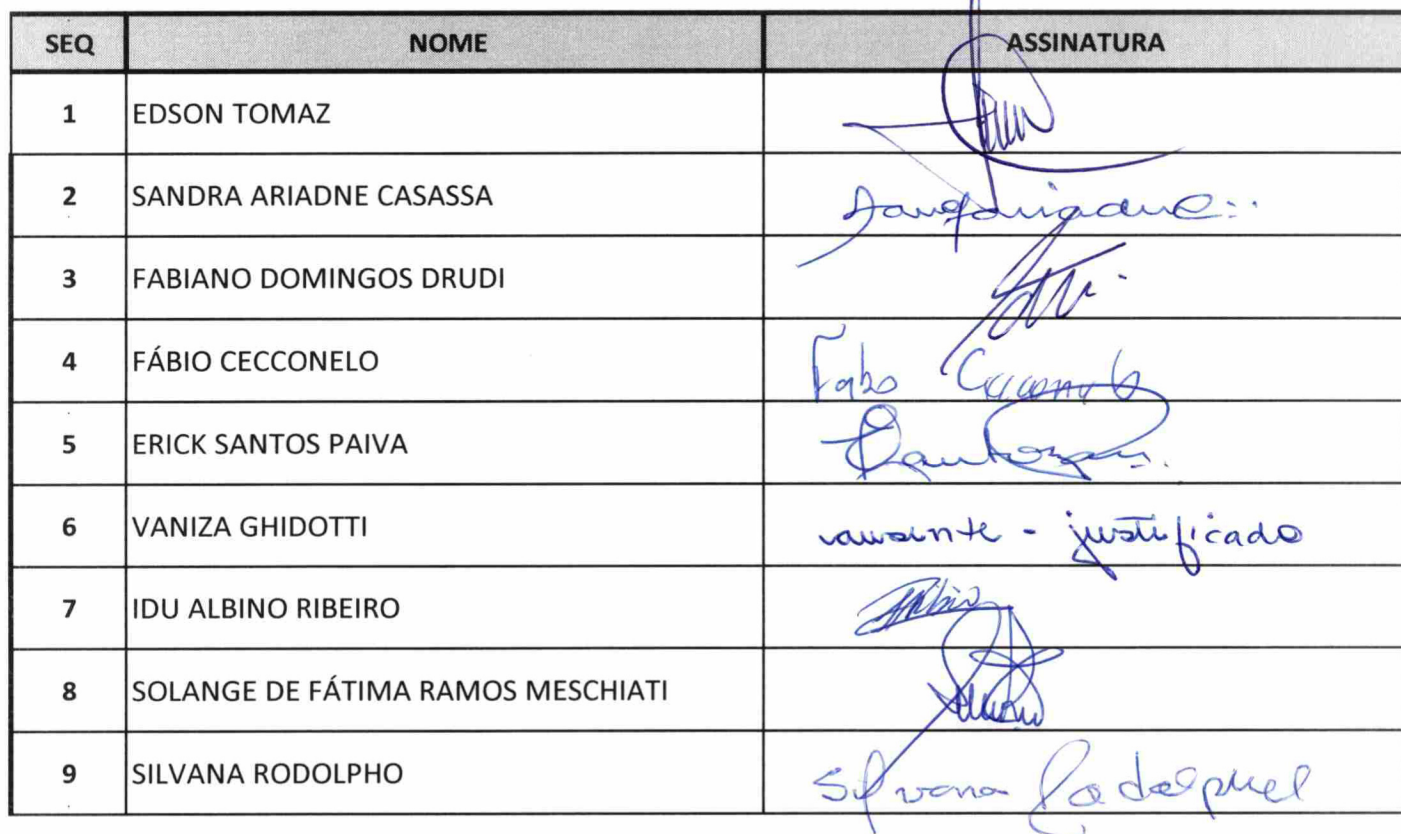 SEQ NOME ASSINATURA
1 EDSON TOMAZ
2 SANDRA ARIADNE CASASSA
3 FABIANO DOMINGOS DRUDI
4 FÁBIO CECCONELO
5 ERICK SANTOS PAIVA
6 VANIZA GHIDOTTI ausente - justificado
7 IDU ALBINO RIBEIRO
8 SOLANGE DE FÁTIMA RAMOS MESCHIATI
9 SILVANA RODOLPHO Silvana